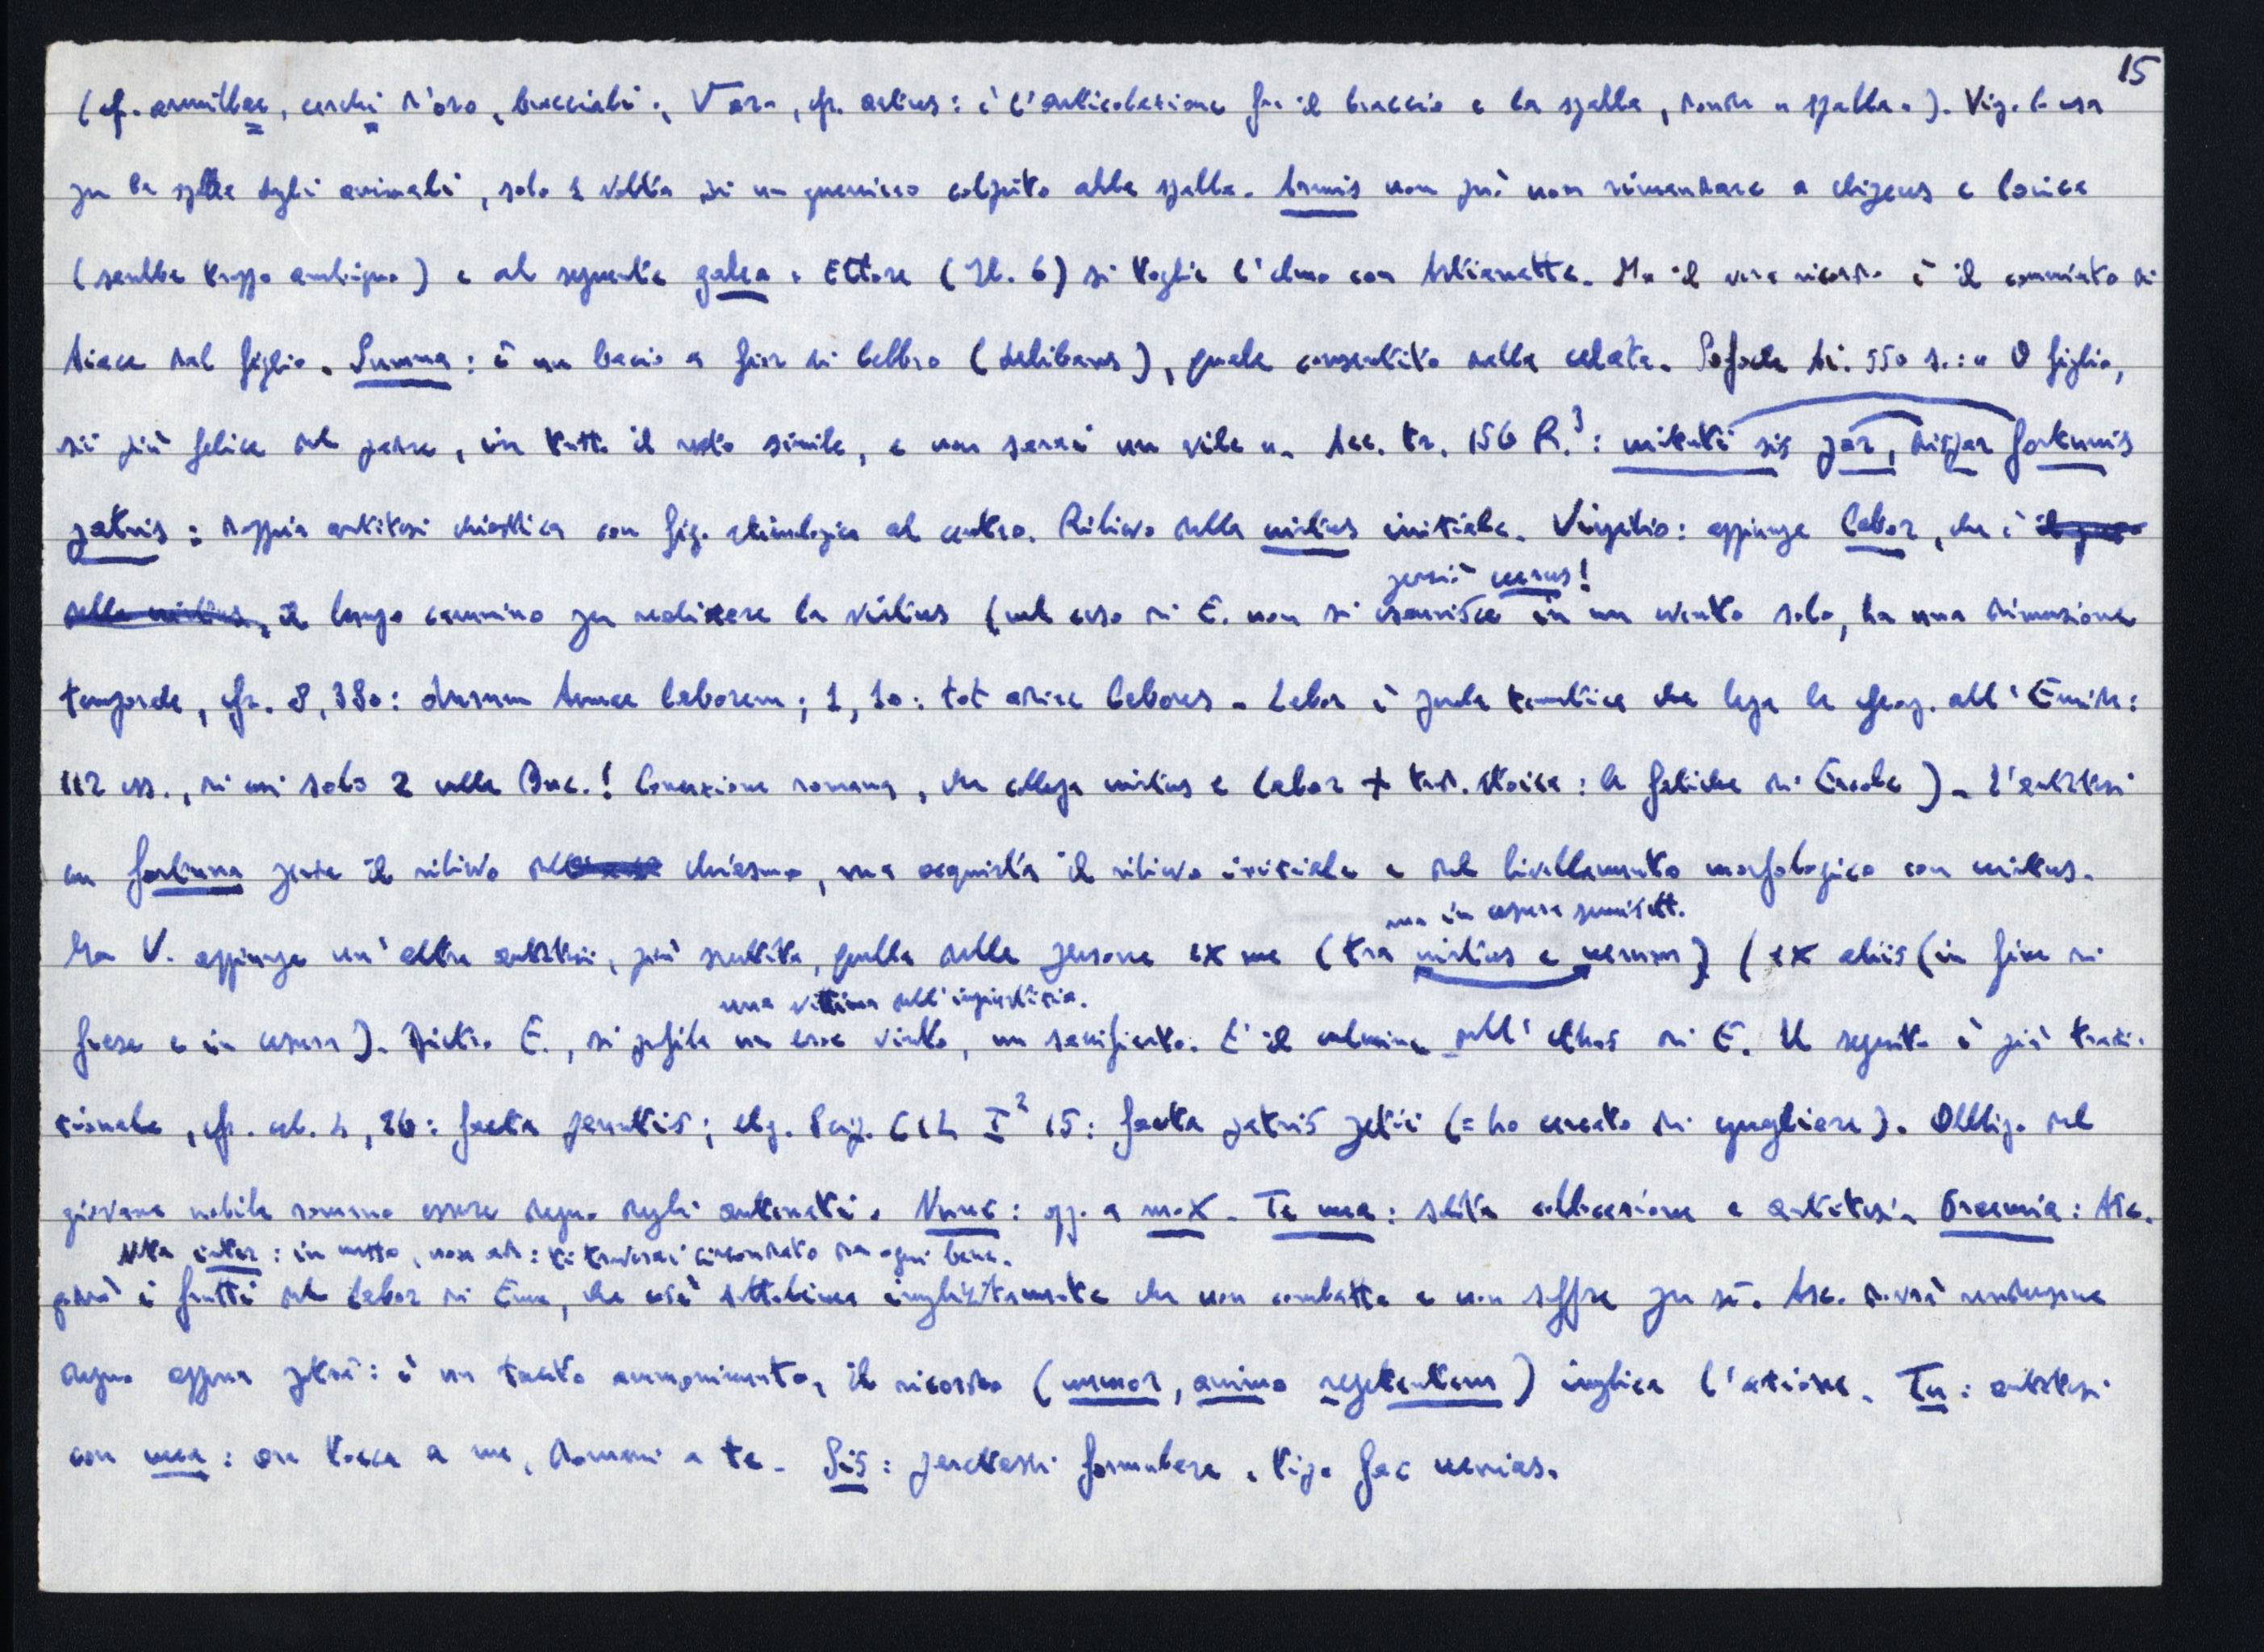 15
(cf. armillae, cerchi d'oro, bracciali, √ar-, cfr. artus: è l'articolazione fra il braccio e la spalla, donde « spalla »). Virg. lo usa
per la spalla degli animali, solo 1 volta di un guerriero colpito alla spalla. Armis non può non rimandare a clipeus e lorica
(sarebbe troppo ambiguo) e al seguente galea. Ettore (Il. 6) si toglie l'elmo con Astianatte. Ma il vero ricordo è il commiato di
Aiace dal figlio. Summa: è un bacio a fior di labbro (delibans), quale consentito dalla celata. Sofocle Ai. 550 s.: « O figlio,
sii più felice del padre, in tutto il resto simile, e non sarai un vile ». Acc. tr. 156 R.³: virtuti sis par, dispar fortunis
patris: doppia antitesi chiastica con fig. etimologica al centro. Rilievo della virtus iniziale. Virgilio: aggiunge labor, che è
perciò verus!
il lungo cammino per realizzare la virtus (nel caso di E. non si esaurisce in un evento solo, ha una dimensione
temporale, cfr. 8, 380: durum Aeneae laborem; 1, 10: tot adire labores. Labor è parola tematica che lega le Georg. all'Eneide:
112 oss., di cui solo 2 nelle Buc.! Concezione romana, che collega virtus e labor + trad. stoica: le fatiche di Ercole). L'antitesi
con fortuna perde il rilievo del chiasmo, ma acquista il rilievo iniziale e del livellamento morfologico con virtus.
ma in cesura semisett.
Ma V. aggiunge un'altra antitesi, più sentita, quella delle persone ex me (tra virtus e verum) / ex aliis (in fine di
una vittima dell'ingiustizia.
frase e in cesura). Dietro E., si profila un eroe vinto, un sacrificato. È il culmine dell'ethos di E. Il seguito è più tradi-
zionale, cfr. ecl. 4, 26: facta parentis; elog. Scip. CIL I² 15: facta patris petii (= ho cercato di eguagliare). Obblig. del
giovane nobile romano essere degno degli antenati. Nunc: opp. a mox. Te mea: solita collocazione e antitesi. Praemia: Asc.
Nota inter: in mezzo, non ad: ti troverai circondato da ogni bene.
godrà i frutti del labor di Enea, che così sottolinea implicitamente che non combatte e non soffre per sé. Asc. dovrà rendersene
degno appena potrà: è un tacito ammonimento, il ricordo (memor, animo repetentem) implica l'azione. Tu: antitesi
con mea: ora tocca a me, domani a te. Sis: paratassi formulare, tipo fac venias.